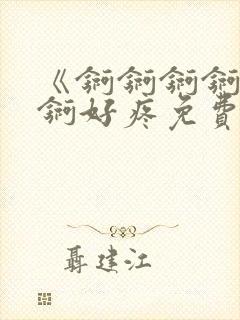 《錒錒錒錒
錒好疼免費
聶建江